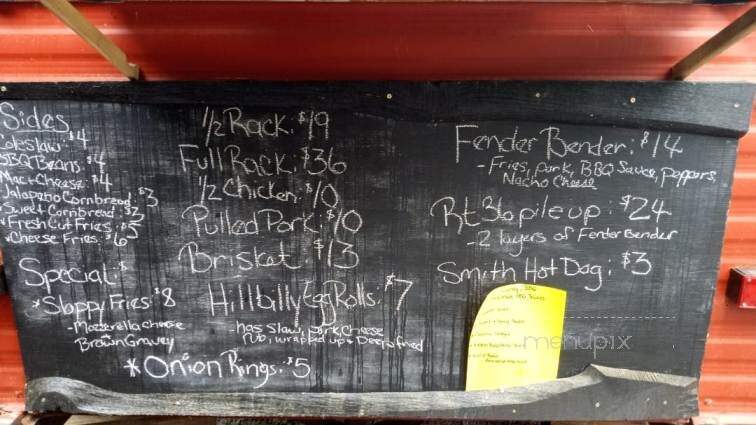 Sides
Coleslaw $4
BBQ Beans $4
Mac+Cheese $4
Jalapano Cornbread $3
* Sweet Cornbread $3
* Fresh Cut Fries $5
* Cheese Fries $6
Special: $
* Sloppy Fries $8
- Mozzerella cheese
Brown Gravey
* Onion Rings: $5
1/2 Rack: $19
Full Rack: $36
1/2 Chicken: $10
Pulled Pork: $10
Brisket: $13
Hillbilly Egg Rolls: $7
has slaw, pork, cheese
rub, wrapped up + Deep fried
Fender Bender: $14
- Fries, pork, BBQ Sauce, peppers,
Nacho Cheese
Rt 36 pile up: $24
- 2 layers of Fender Bender
Smith Hot Dog: $3
menupix